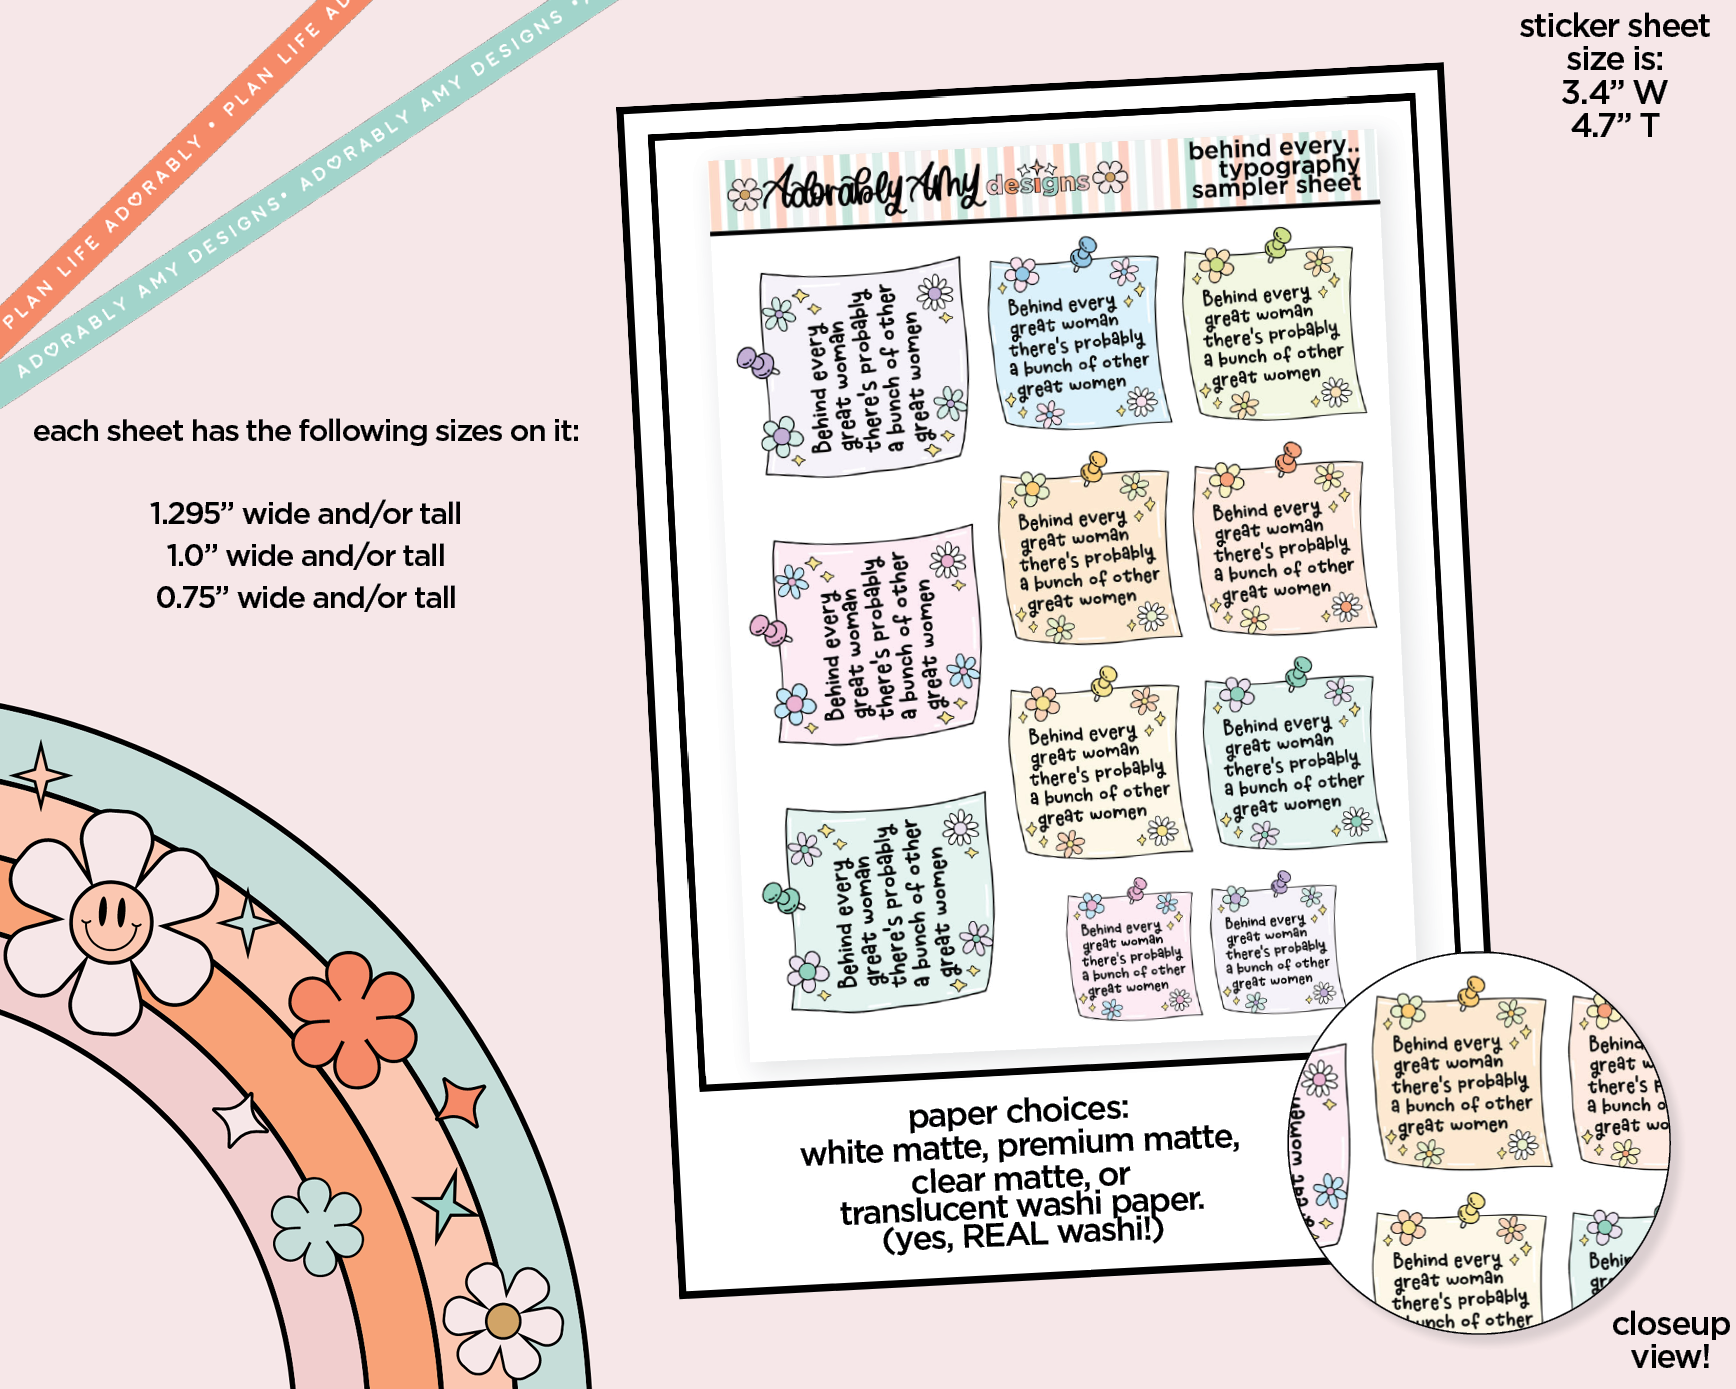 PLAN LIFE ADORABLY • PLAN LIFE AD
ADORABLY AMY DESIGNS • ADORABLY AMY DESIGNS •
sticker sheet
size is:
3.4” W
4.7” T
each sheet has the following sizes on it:
1.295” wide and/or tall
1.0” wide and/or tall
0.75” wide and/or tall
Adorably Amy designs
behind every..
typography
sampler sheet
Behind every
great woman
there's probably
a bunch of other
great women
Behind every
great woman
there's probably
a bunch of other
great women
Behind every
great woman
there's probably
a bunch of other
great women
Behind every
great woman
there's probably
a bunch of other
great women
Behind every
great woman
there's probably
a bunch of other
great women
Behind every
great woman
there's probably
a bunch of other
great women
Behind every
great woman
there's probably
a bunch of other
great women
Behind every
great woman
there's probably
a bunch of other
great women
Behind every
great woman
there's probably
a bunch of other
great women
Behind every
great woman
there's probably
a bunch of other
great women
Behind every
great woman
there's probably
a bunch of other
great women
paper choices:
white matte, premium matte,
clear matte, or
translucent washi paper.
(yes, REAL washi!)
Behind every
great woman
there's probably
a bunch of other
great women
Behind
great w
there's p
a bunch o
great wo
Behind every
great woman
there's probably
unch of other
Behin
gr
closeup
view!